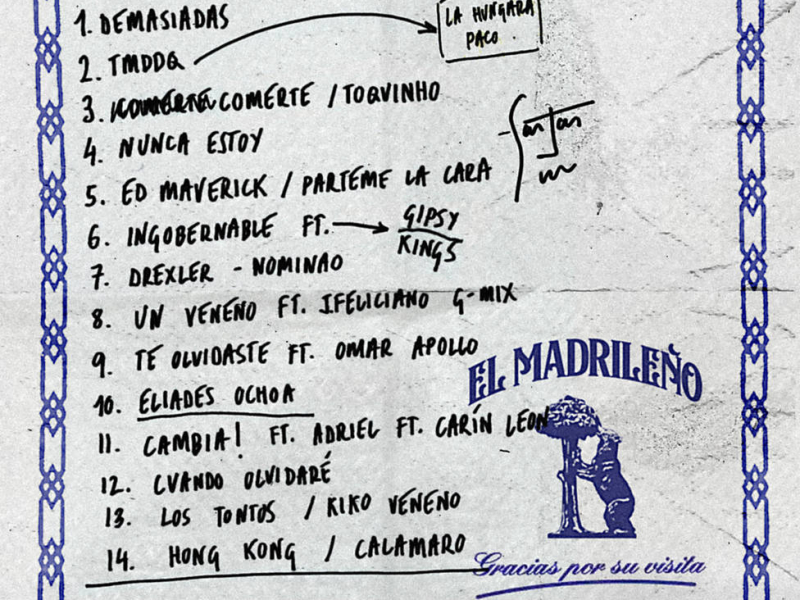 1. DEMASIADAS
LA HUNGARA
PACO.
2. TMDDQ
3. COMERTE / TOQUINHO
4. NUNCA ESTOY
5. ED MAVERICK / PARTEME LA CARA
6. INGOBERNABLE FT. → GIPSY
KINGS
7. DREXLER - NOMINAO
8. UN VENENO FT. J.FELICIANO G-MIX
9. TE OLVIDASTE FT. OMAR APOLLO
10. ELIADES OCHOA
11. CAMBIA! FT. ADRIEL FT. CARÍN LEON
12. CUANDO OLVIDARÉ
13. LOS TONTOS / KIKO VENENO
14. HONG KONG / CALAMARO
EL MADRILEÑO
Gracias por su visita